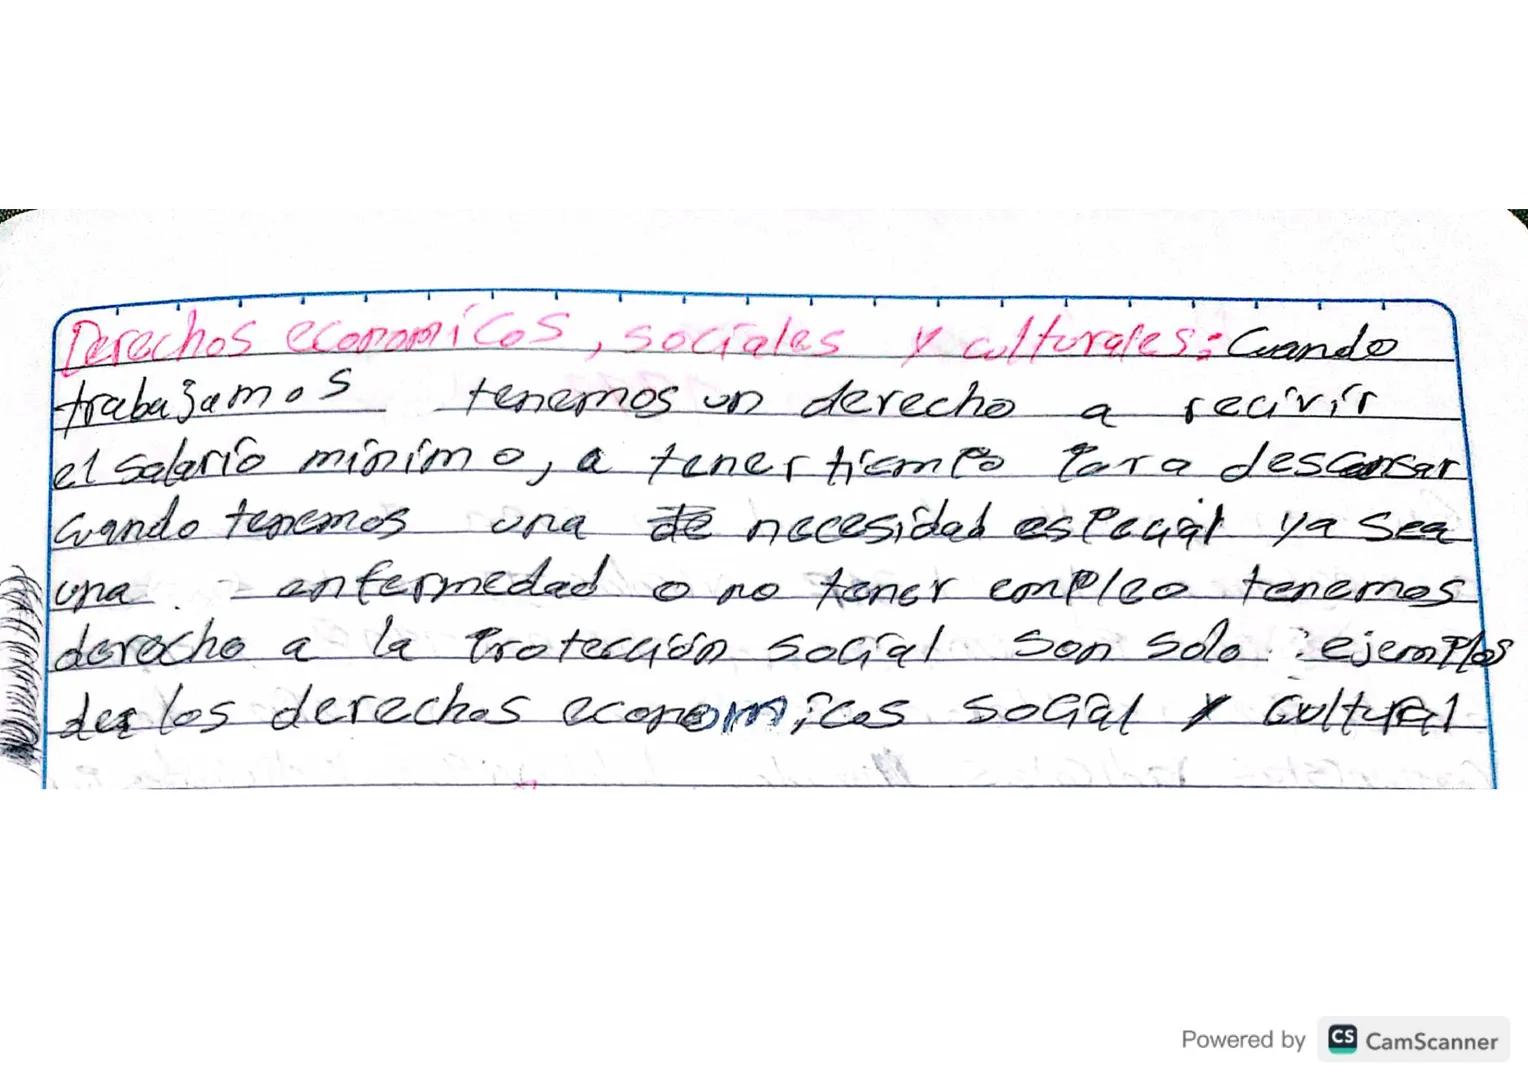 Derechos economicos, sociales y culturales: Cuando
trabajamos tenemos un derecho a recivir
el salario minimo, a tener tiempo para descansar
cuando tenemos una de necesidad especial ya sea
una enfermedad o no tener empleo tenemos
derecho a la Protección social son solo ejemplos
der los derechos economicos social y cultural
Powered by CS CamScanner